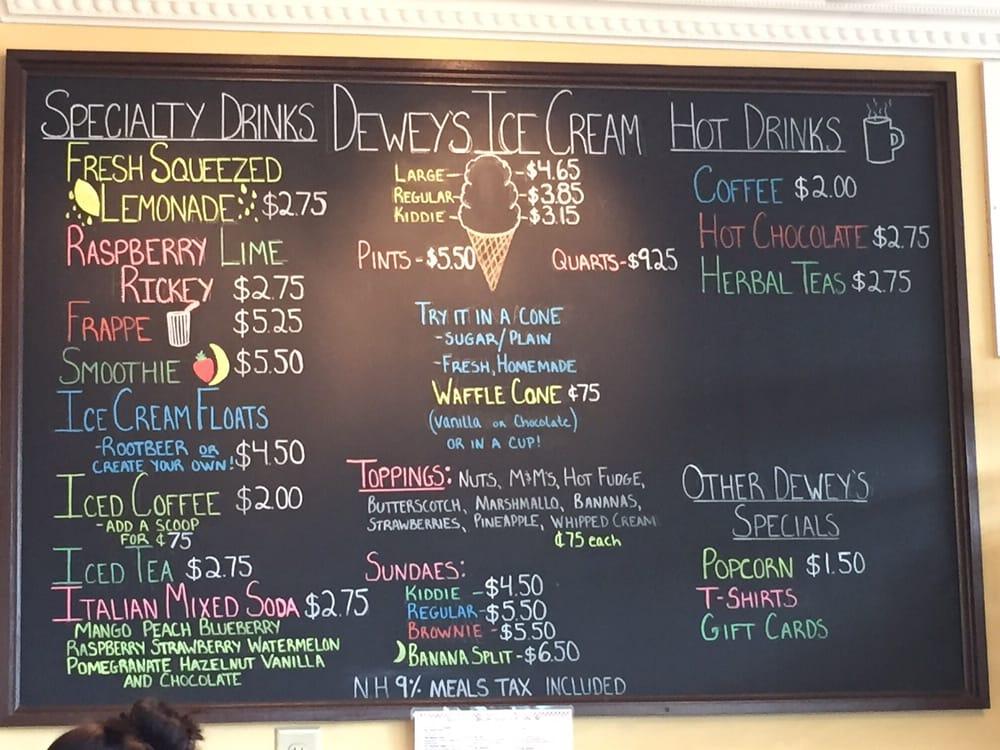 SPECIALTY DRINKS
FRESH SQUEEZED
LEMONADE $2.75
RASPBERRY LIME
RICKEY $2.75
FRAPPE $5.25
SMOOTHIE $5.50
ICE CREAM FLOATS
-ROOTBEER OR
CREATE YOUR OWN! $4.50
ICED COFFEE $2.00
-ADD A SCOOP
FOR ¢75
ICED TEA $2.75
ITALIAN MIXED SODA $2.75
MANGO PEACH BLUEBERRY
RASPBERRY STRAWBERRY WATERMELON
POMEGRANATE HAZELNUT VANILLA
AND CHOCOLATE
DEWEY'S ICE CREAM
LARGE- -$4.65
REGULAR- -$3.85
KIDDIE- -$3.15
PINTS-$5.50 QUARTS-$9.25
TRY IT IN A CONE
-SUGAR/PLAIN
-FRESH, HOMEMADE
WAFFLE CONE ¢75
(Vanilla or Chocolate)
OR IN A CUP!
TOPPINGS: NUTS, M&M'S, HOT FUDGE,
BUTTERSCOTCH, MARSHMALLO, BANANAS,
STRAWBERRIES, PINEAPPLE, WHIPPED CREAM
¢75 each
SUNDAES:
KIDDIE -$4.50
REGULAR-$5.50
BROWNIE -$5.50
BANANA SPLIT-$6.50
NH 9% MEALS TAX INCLUDED
HOT DRINKS
COFFEE $2.00
HOT CHOCOLATE $2.75
HERBAL TEAS $2.75
OTHER DEWEY'S
SPECIALS
POPCORN $1.50
T-SHIRTS
GIFT CARDS